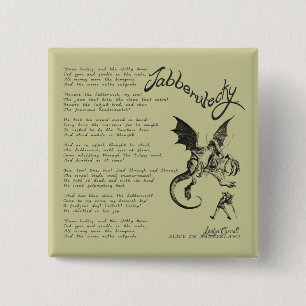 Jabberwocky
'Twas brillig, and the slithy toves
Did gyre and gimble in the wabe;
All mimsy were the borogoves,
And the mome raths outgrabe.
"Beware the Jabberwock, my son!
The jaws that bite, the claws that catch!
Beware the Jubjub bird, and shun
The frumious Bandersnatch!"
He took his vorpal sword in hand:
Long time the manxome foe he sought --
So rested he by the Tumtum tree,
And stood awhile in thought.
And as in uffish thought he stood,
The Jabberwock, with eyes of flame,
Came whiffling through the tulgey wood,
And burbled as it came!
One, two! One, two! And through and through
The vorpal blade went snicker-snack!
He left it dead, and with its head
He went galumphing back.
"And has thou slain the Jabberwock?
Come to my arms, my beamish boy!
O frabjous day! Callooh! Callay!"
He chortled in his joy.
'Twas brillig, and the slithy toves
Did gyre and gimble in the wabe;
All mimsy were the borogoves,
And the mome raths outgrabe.
Lewis Carroll
ALICE IN WONDERLAND